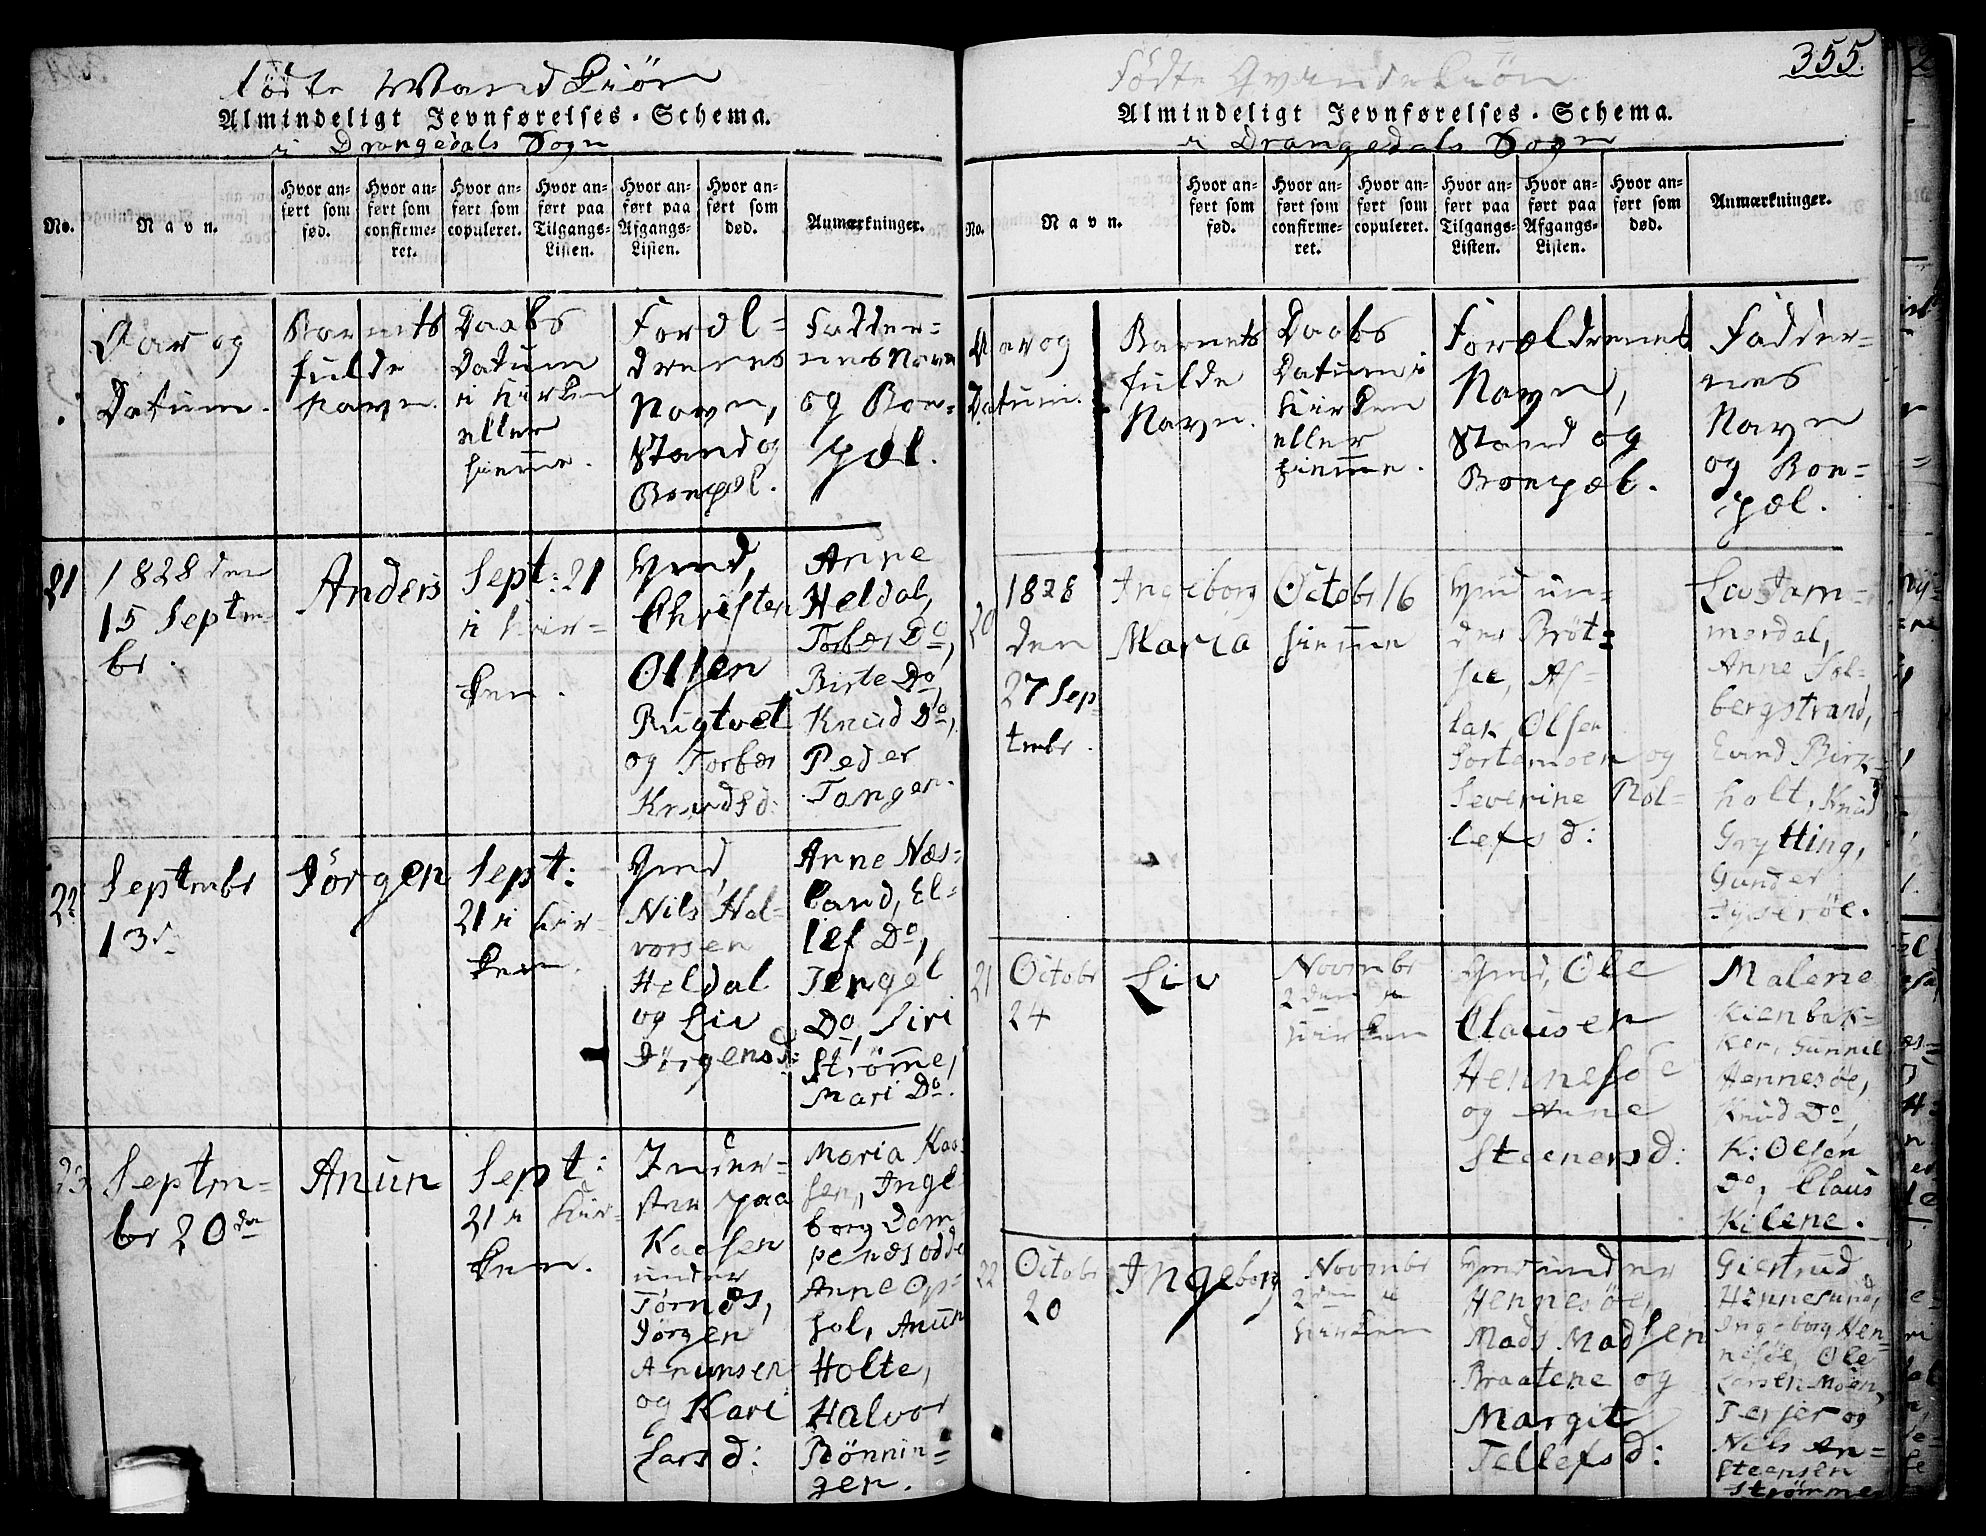 fødte Mandkiøn
Almindeligt Jevnførelses-Schema.
i Drangedals Sogn
No.
Navn.
Hvor an-
ført som
fød.
Hvor an-
ført som
confirme-
ret.
Hvor an-
ført som
copuleret.
Hvor an-
ført paa
Tilgangs-
Listen.
Hvor an-
ført paa
Afgangs-
Listen.
Hvor an-
ført som
død.
Anmærkninger.
Aar og
Datum.
Barnets
fulde
Navn.
Daabs
Datum
i Kirken
eller
hieme.
Foræl-
drenes
Navn,
Stand og
Bopæl.
Fadder-
nes Navn
og Boe-
pæl.
21
1828 den
15 Septm-
br.
Anders
Sept: 21
i Kir-
ken.
Gmd,
Christen
Olsen
Rugtvet
og Torbor
Knudsd:
Anne
Heldal,
Torbor Do,
Birte Do,
Knud Do,
Peder
Tangen.
22
Septmbr
13d
Jørgen
Sept:
21 i Kir-
ken.
Gmd,
Nils Hal-
vorsen
Heldal
og Liv
Jørgensd:
Anne Næs-
land, El-
lef Do,
Jengel
Do, Siri
Strøme,
Mari Do.
23
Septm-
br 20de
Anun
Sept:
21 i Kir-
ken.
Inder-
ster paa
Kaasen
under
Tørnes,
Jørgen
Anunsen
og Kari
Larsd:
Maria Kaa-
sen, Inge
borg Dam
penesodde
Anne Op-
sal, Anun
Holte,
Halvor
Bønnin-
gen.
355.
Fødte Qvindekiøn
Almindeligt Jevnførelses-Schema.
i Drangedals Sogn
No.
Navn.
Hvor an-
ført som
fød.
Hvor an-
ført som
confirme-
ret.
Hvor an-
ført som
copuleret.
Hvor an-
ført paa
Tilgangs-
Listen.
Hvor an-
ført paa
Afgangs-
Listen.
Hvor an-
ført som
død.
Anmærkninger.
Aar og
Datum.
Barnets
fulde
Navn.
Daabs
Datum i
Kirken
eller
hieme.
Forældrenes
Navn,
Stand og
Boepæl.
Fadder-
nes
Navn
og Boe-
pæl.
20
1828
den
27 Sep-
tmbr.
Ingeborg
Maria
Octobr 16
hieme
Hmd un-
der Brøt-
søe, As-
lak Olsen
og
Severine Rol-
lefsd:
Liv Tam-
merdal,
Anne Sol-
bergstrand,
Evind Birk-
holt, Knud
Grytting,
Gunder
21
Octobr
24
Liv
Novmbr
2den i
Kirken
Gmd, Ole
Clausen
Hennesøe
og Anne
Steenersd:
Malene
Kienbæk-
ker, Gunnil
Hennesøe,
Knud Do,
K: Olsen
Do, Claus
Kilene.
22
Octobr
20
Ingeborg
Novmbr
2den i
Kirken
Hmd under
Hennesøe,
Mads Madsen
Braatene og
Margit
Tellefsd:
Giertrud
Hennesund,
Ingeborg Hen-
nesøe, Ole
Larsen Moen,
Terjer og
Nils An-
steensen
Strømme